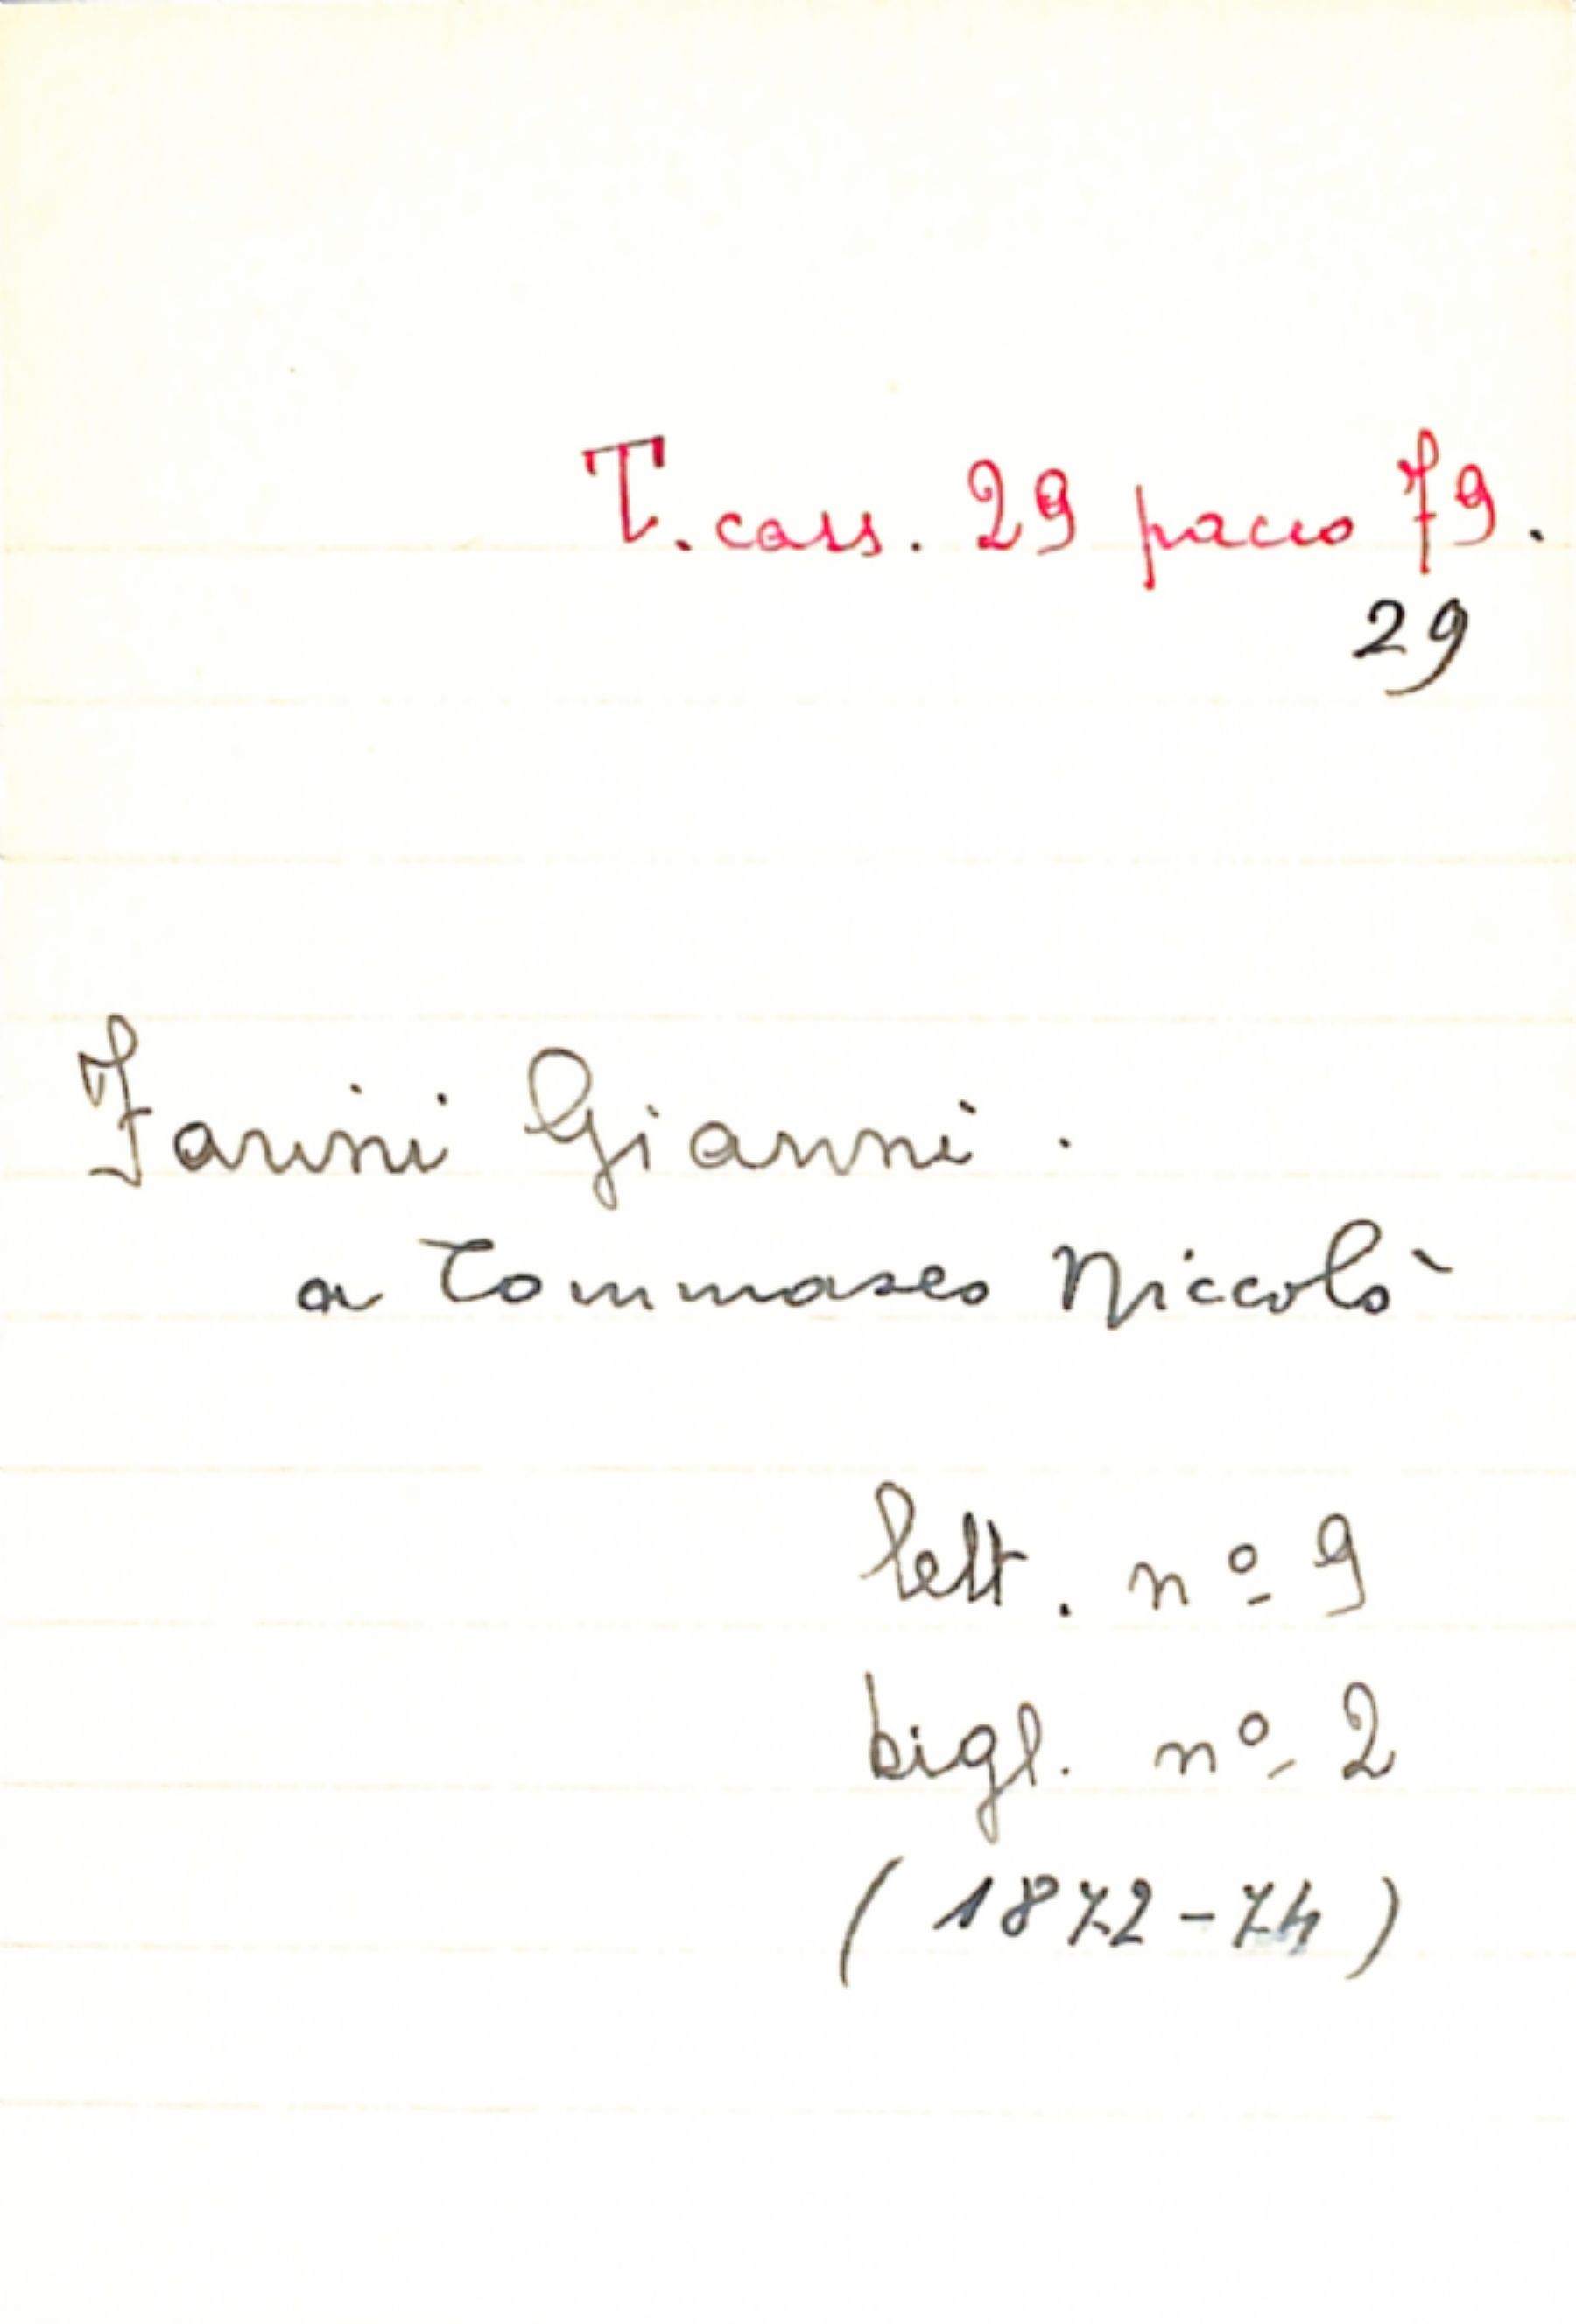 T. cass. 29 pacco 79.
29
Farini Gianni.
a Tommaseo Niccolò
lett. nº 9
bigl. nº 2
(1872-74)